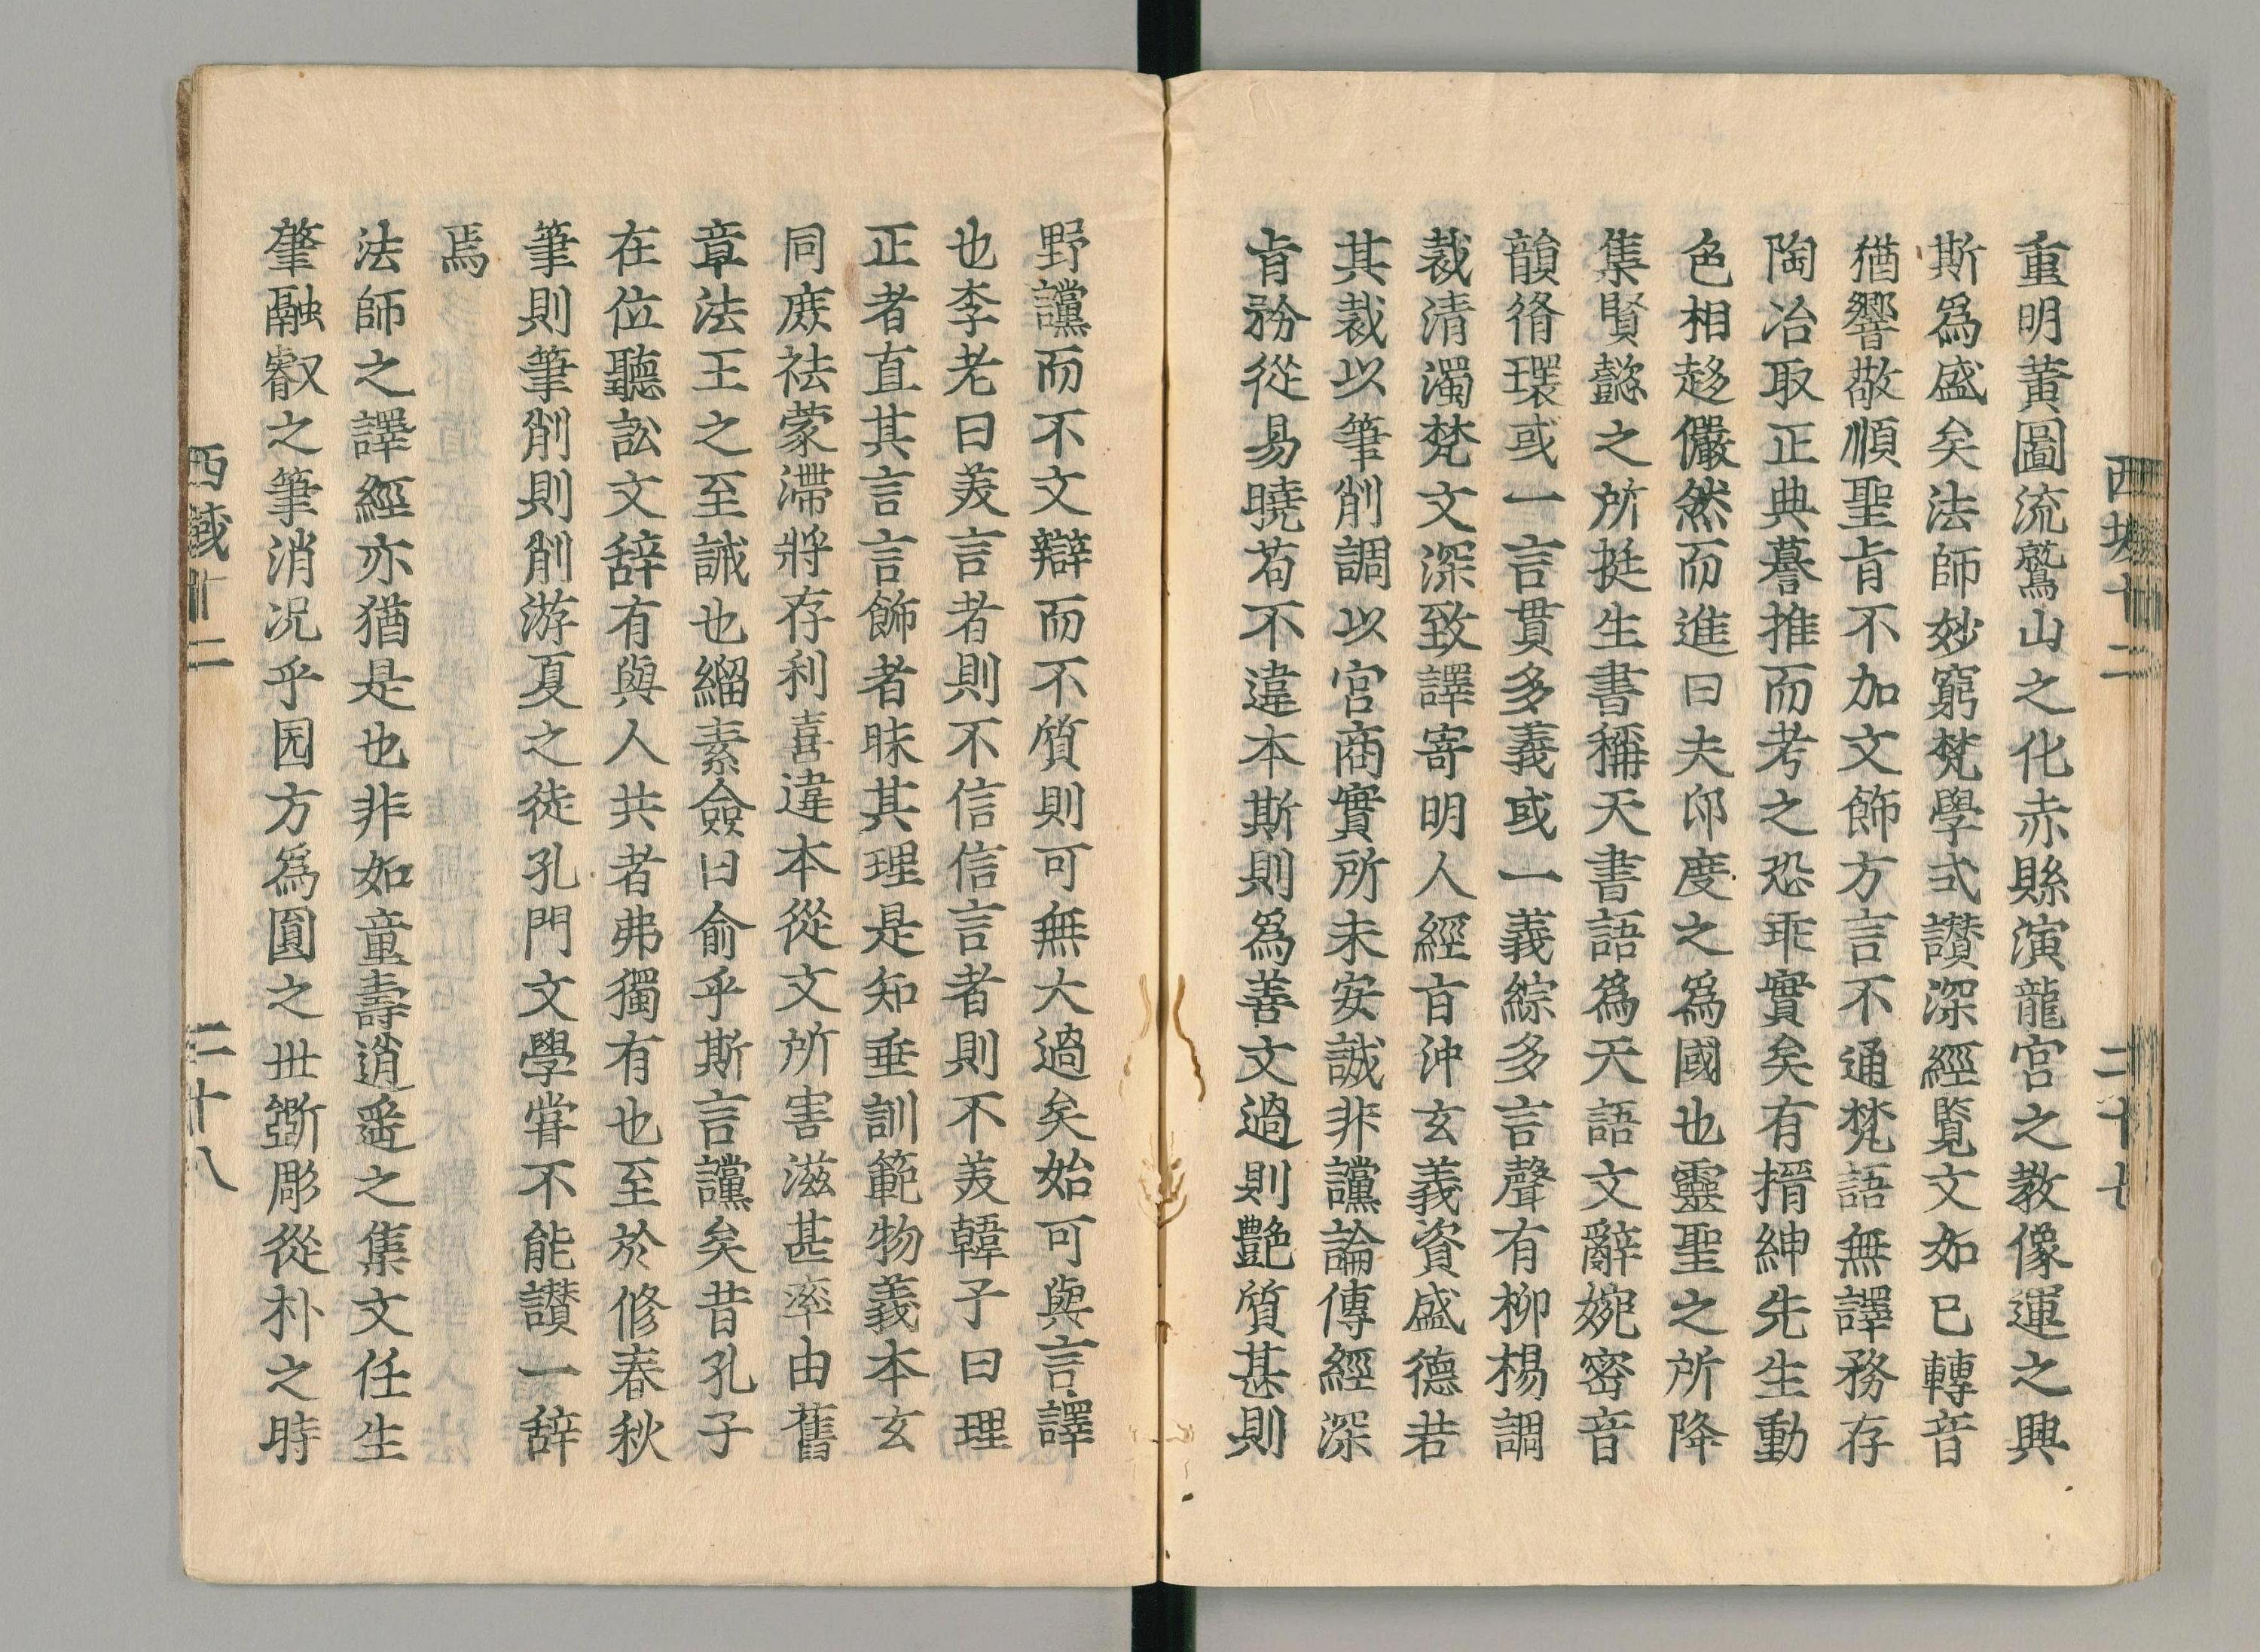 西域十二 二十七
重明黄圖流鷲山之化赤縣演龍宮之教像運之興
斯爲盛矣法師妙窮梵學式讃深經覧文如已轉音
猶響敬順聖㫖不加文飾方言不通梵語無譯務存
陶冶取正典謩推而考之恐乖實矣有搢紳先生動
色相趍儼然而進曰夫印度之爲國也靈聖之所降
集賢懿之所挺生書稱天書語爲天語文辭婉密音
韻循環或一言貫多義或一義綜多言聲有抑揚調
裁清濁梵文深致譯寄明人經㫖沖玄義資盛德若
其裁以筆削調以宮商實所未安誠非讜論傳經深
㫖務從易曉苟不違本斯則爲善文過則艶質甚則
野讜而不文辯而不質則可無大過矣始可與言譯
也李老曰美言者則不信信言者則不美韓子曰理
正者直其言言飾者昧其理是知垂訓範物義本玄
同庶袪蒙滯將存利喜違本從文所害滋甚率由舊
章法王之至誠也緇素僉曰俞乎斯言讜矣昔孔子
在位聽訟文辞有與人共者弗獨有也至於修春秋
筆則筆削則削游夏之徒孔門文學甞不能讃一辞
焉
法師之譯經亦猶是也非如童壽逍遥之集文任生
肇融叡之筆消况乎园方爲圓之丗斲彫從朴之時
西域十二 二十八